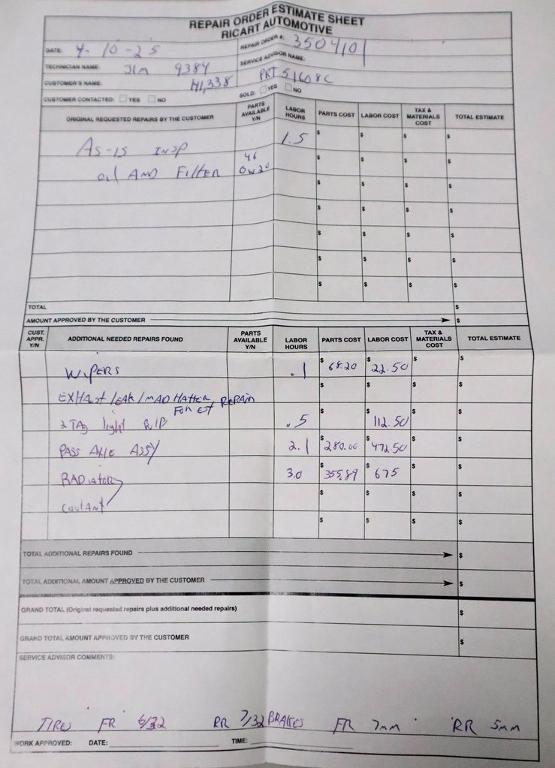 REPAIR ORDER ESTIMATE SHEET
RICART AUTOMOTIVE
DATE: 4-10-25 REPAIR ORDER #: 3504101
TECHNICIAN NAME: JIM 9384 SERVICE ADVISOR NAME:
CUSTOMER'S NAME: 141,338 PKT51608C
CUSTOMER CONTACTED: YES NO SOLD: YES NO
ORIGINAL REQUESTED REPAIRS BY THE CUSTOMER PARTS AVAILABLE Y/N LABOR HOURS PARTS COST LABOR COST TAX & MATERIALS COST TOTAL ESTIMATE
AS-IS INSP 1.5 $ $ $ $
oil AND FilTER 0W20 $ $ $ $
$ $ $ $
$ $ $ $
$ $ $ $
$ $ $ $
$ $ $ $
TOTAL $
AMOUNT APPROVED BY THE CUSTOMER $
CUST. APPR. Y/N ADDITIONAL NEEDED REPAIRS FOUND PARTS AVAILABLE Y/N LABOR HOURS PARTS COST LABOR COST TAX & MATERIALS COST TOTAL ESTIMATE
WIPERS .1 $ 68.20 $ 22.50 $ $
EXHAUST LEAK/MAD HATTER FOR EST REPAIR $ $ $ $
2 TAG light .5 $ $ 112.50 $ $
PASS AXLE ASSY 2.1 $ 280.00 $ 472.50 $ $
RADIATOR 3.0 $ 355.89 $ 675 $ $
COOLANT $ $ $ $
$ $ $ $
TOTAL ADDITIONAL REPAIRS FOUND $
TOTAL ADDITIONAL AMOUNT APPROVED BY THE CUSTOMER $
GRAND TOTAL (Original requested repairs plus additional needed repairs) $
GRAND TOTAL AMOUNT APPROVED BY THE CUSTOMER $
SERVICE ADVISOR COMMENTS:
TIRES FR 6/32 RR 7/32 BRAKES FR 7mm RR 5mm
WORK APPROVED: DATE: TIME: